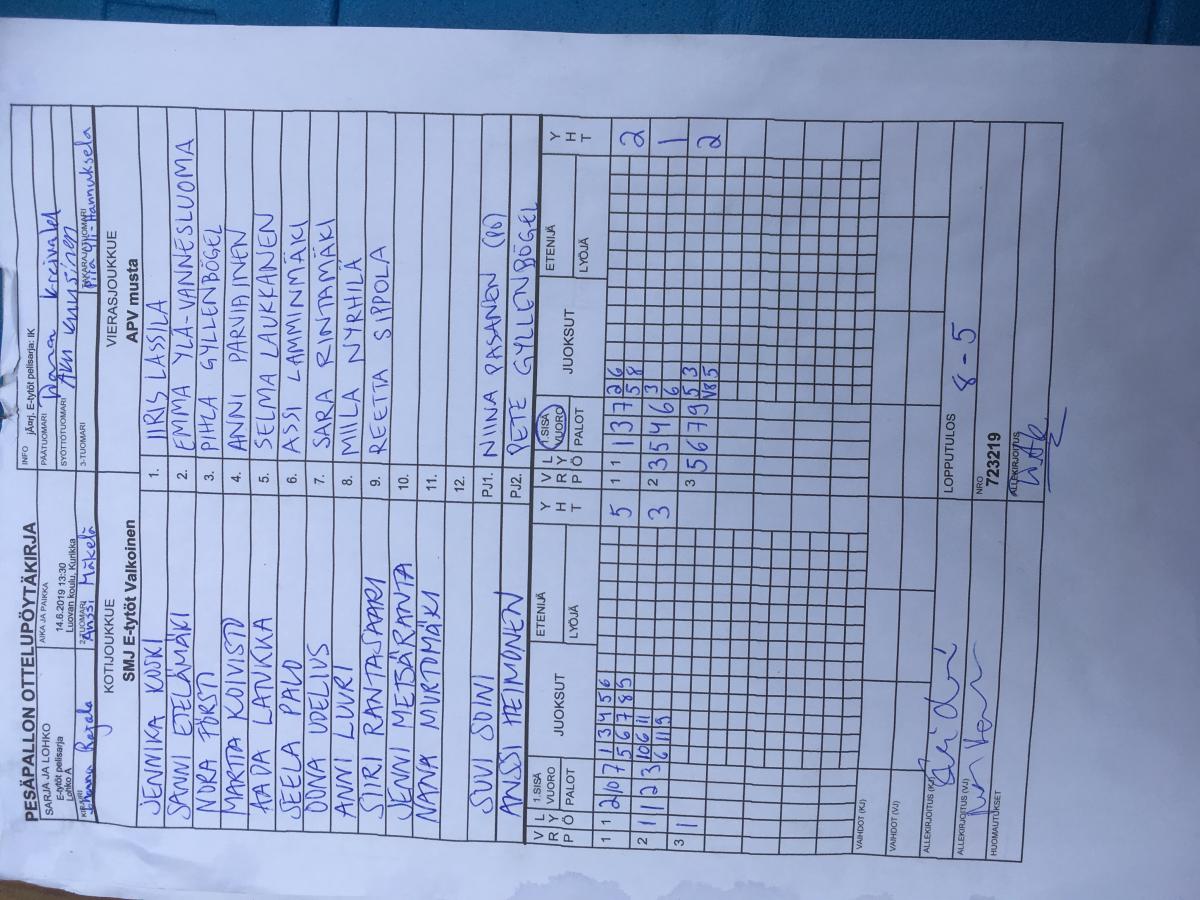 PESÄPALLON OTTELUPÖYTÄKIRJA
SARJA JA LOHKO
E-tytöt pelisarja
Lohko A
AIKA JA PAIKKA
14.6.2019 13:30
Luovan koulu, Kurikka
INFO jÄarj. E-tytöt pelisarja: IK
PÄÄTUOMARI
SYÖTTÖTUOMARI
KIRJURI
2-TUOMARI Anssi Mäkelä
3-TUOMARI
TAKARAJATUOMARI
KOTIJOUKKUE
SMJ E-tytöt Valkoinen
VIERASJOUKKUE
APV musta
JENNIKA KOSKI 1. IIRIS LASSILA
SANNI ETELÄMÄKI 2. EMMA YLÄ-VANNESLUOMA
NORA PÖRSTI 3. PIHLA GYLLENBÖGEL
MARTTA KOIVISTO 4. ANNI PARVIAINEN
AADA LATUKKA 5. SELMA LAUKKANEN
SEELA PALO 6. ASSI LAMMINMÄKI
OONA UDELIUS 7. SARA RINTAMÄKI
ANNI LUURI 8. MIILA NYRHILÄ
SIIRI RANTASAARI 9. REETTA SIPPOLA
JENNI METSÄRANTA 10.
NANA MURTOMÄKI 11.
12.
SUVI SOINI PJ1. NIINA PASANEN (PO)
ANSSI HEIMONEN PJ2. PETE GYLLENBÖGEL
V L 1.SISÄ JUOKSUT ETENIJÄ Y V L 1.SISÄ JUOKSUT ETENIJÄ Y
R Y VUORO H R Y VUORO H
P Ö PALOT LYÖJÄ T P Ö PALOT LYÖJÄ T
1 1 2 0 7 1 3 4 5 6 5 1 1 1 3 7 2 6 2
5 6 7 8 5 5 8
2 1 1 2 3 10 6 11 3 2 3 5 4 6 3 1
6 11 9 6
3 1 3 5 6 7 9 5 3 2
VR 5
VAIHDOT (KJ)
VAIHDOT (VJ)
ALLEKIRJOITUS (KJ)
LOPPUTULOS 8-5
ALLEKIRJOITUS (VJ)
NRO
723219
HUOMAUTUKSET
ALLEKIRJOITUS